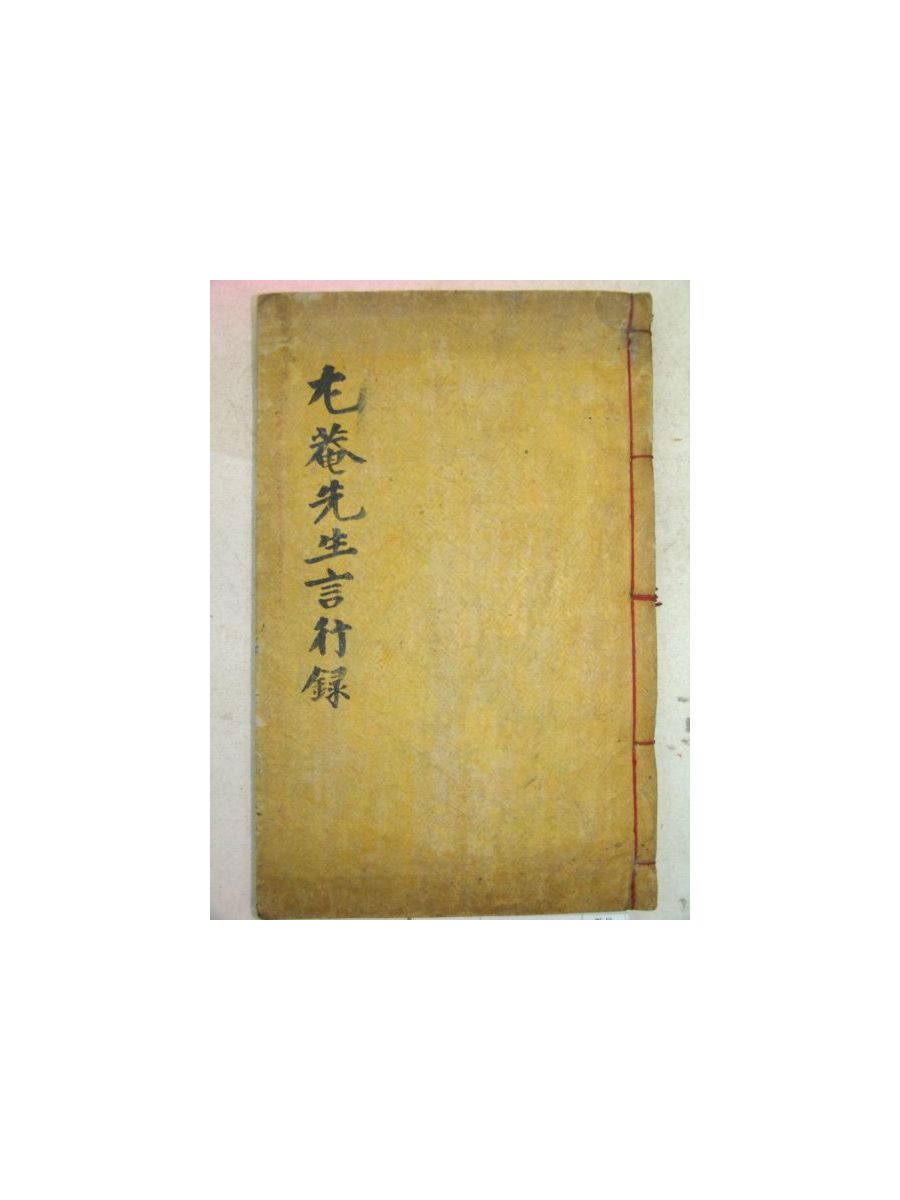 菴先生言行録